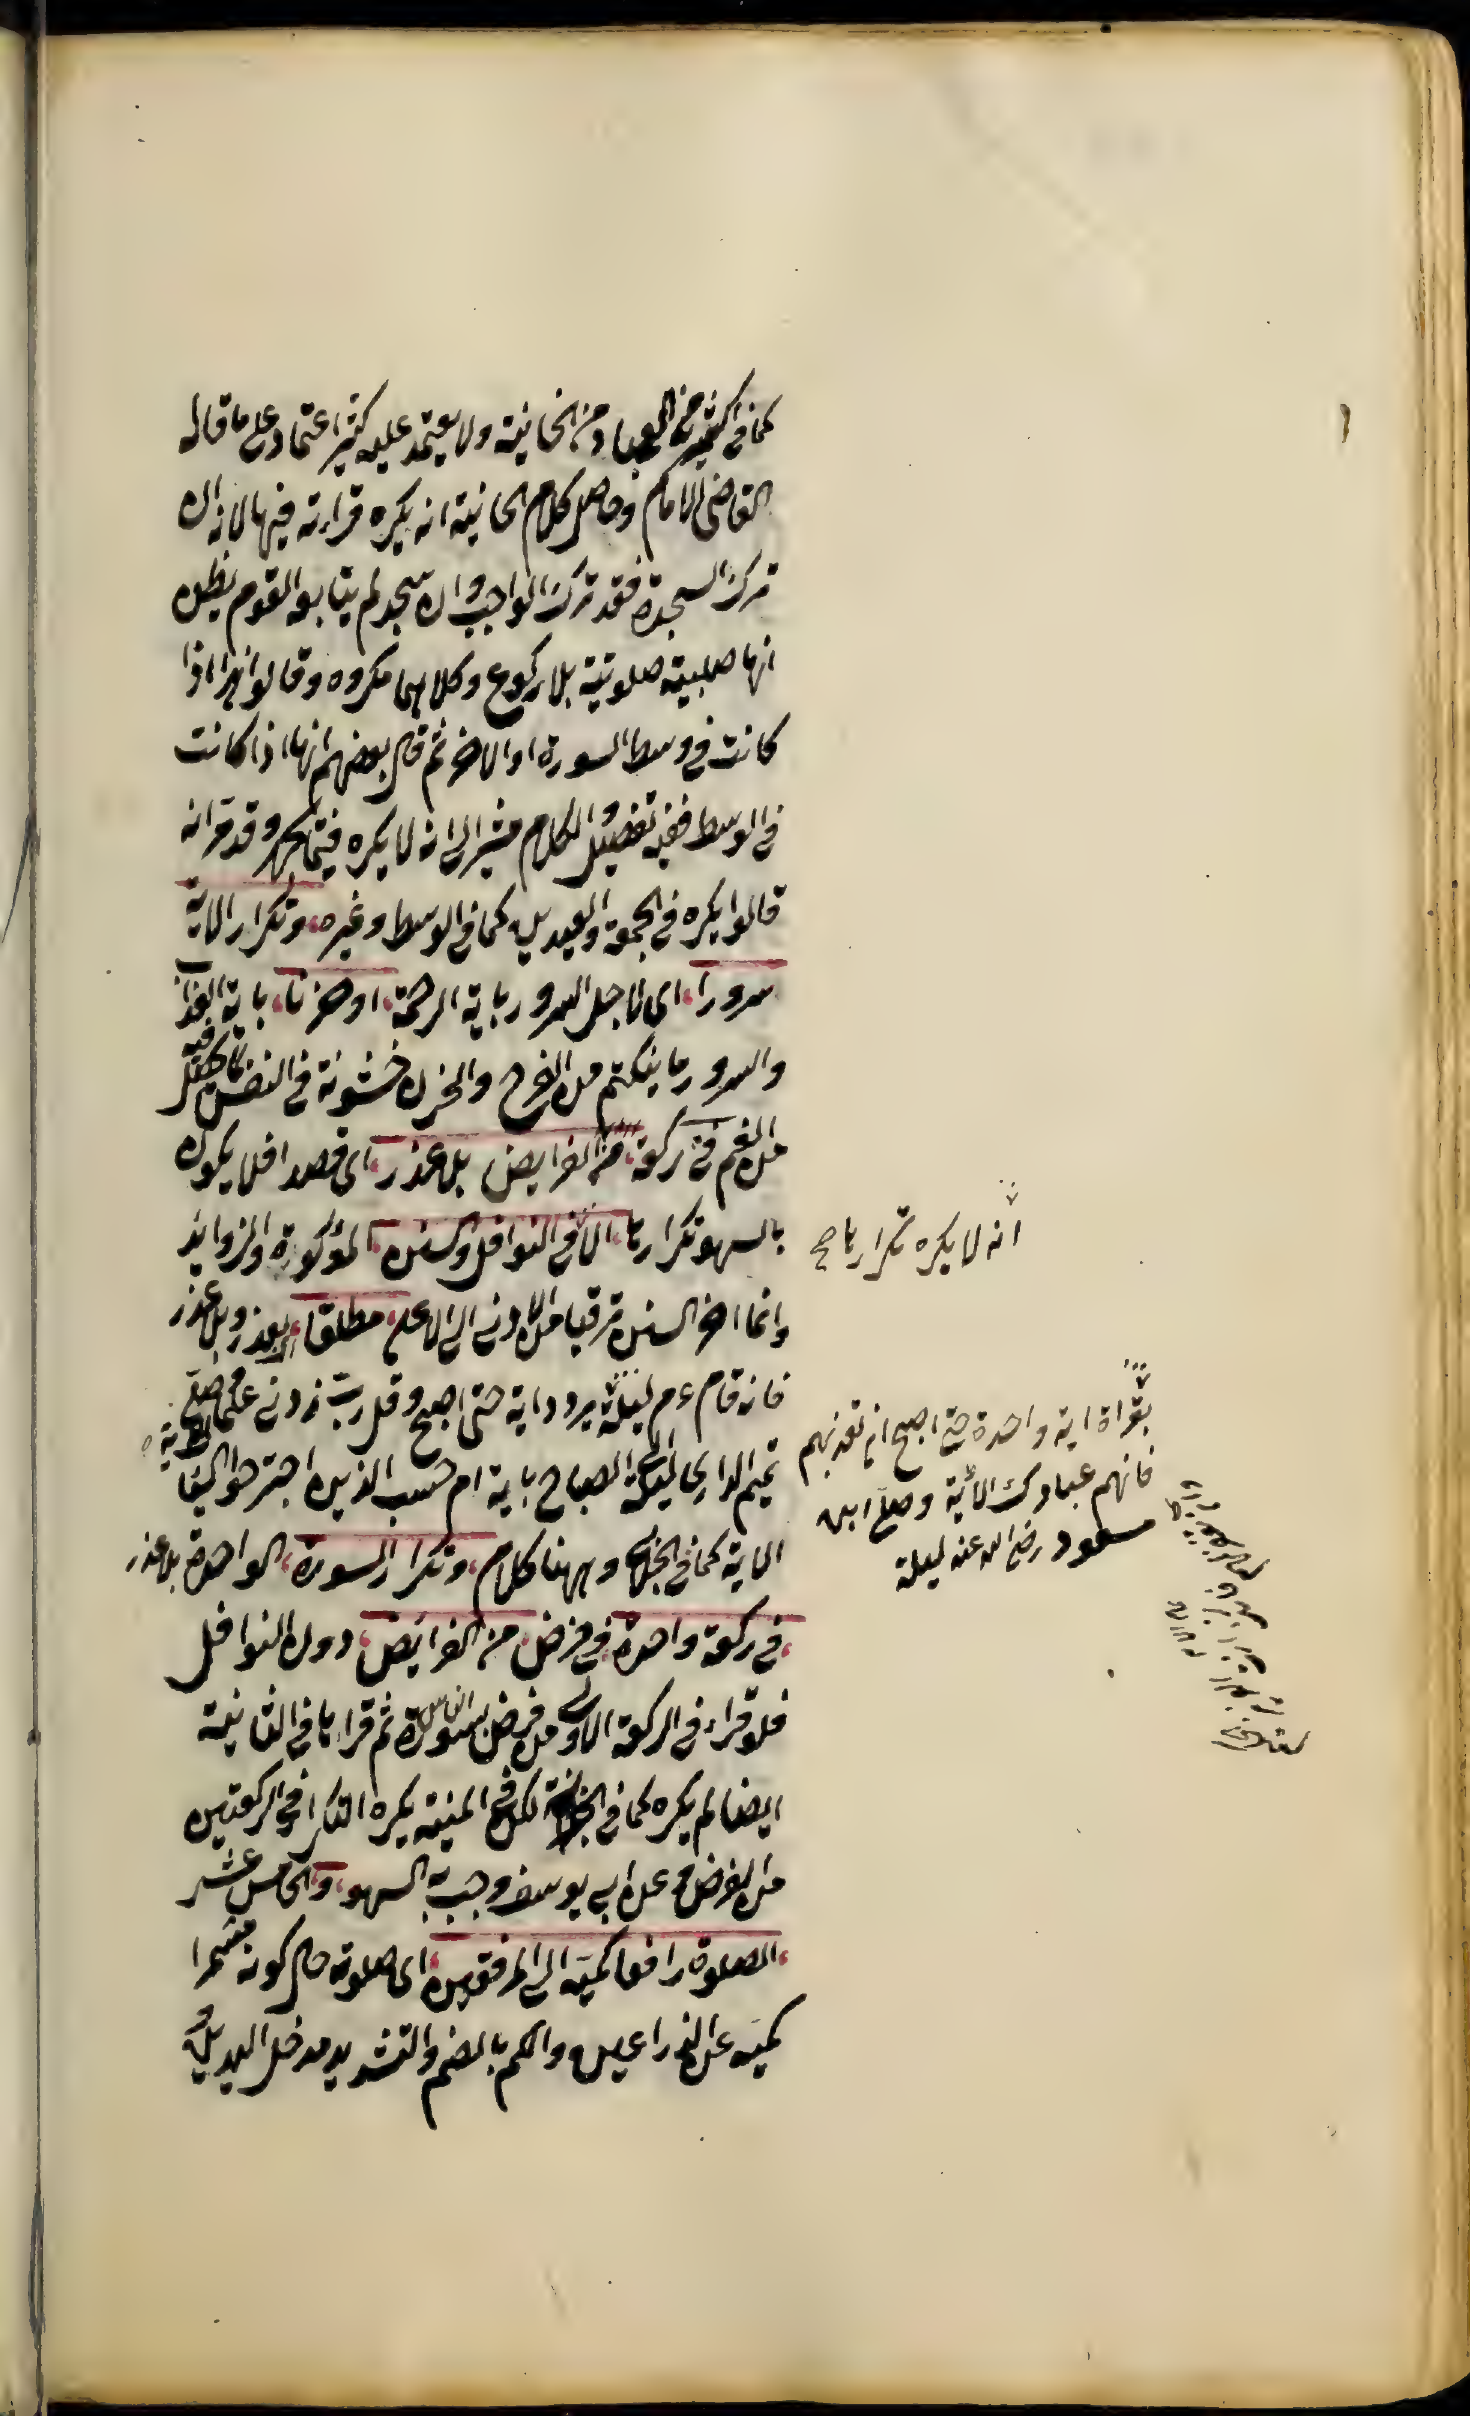 كما في كثير من العباد من الخانية ولا يعتمد عليه كثير اعتماد على ما قاله
القاضى الامام وحاصل كلام الخانية انه يكره قراءته فيها لانه ان
ترك السجدة فقد ترك الواجب وان سجد لم يتابعه القوم بظن
انها صلبية صلوتية بلا ركوع وكلاهما مكروه وقالوا هذا اذا
كانت في وسط السورة او الاخر ثم قال بعضهم انها اذا كانت
في الوسط ففيه تفصيل والكلام مشير الى انه لا يكره فيما يجهر وقد مر انه
قالوا يكره في الجمعة والعيدين كما في الوسط وغيره وتكرار الاية
سرورا اى لاجل السرور باية الرحمة او حزنا باية العذاب
والسرور ما ينكتم من الفرح والحزن خشونة في النفس لما يحصل فيه
من الغم في ركعة من الفرايض بلا عذر اى قصدا فلا يكون
بالسهو تكرارها الا في النوافل والسنن المؤكدة والزوايد
وانما اخر السنن ترقيا من الادنى الى الاعلى مطلقا بعذر وبلا عذر
فانه قام ءم ليلة يردد اية حتى اصبح وقل رب زدنى علما وصلى
تميم الدارى ليلة الى الصباح باية ام حسب الذين اجترحوا السيئات الاية
الاية كما في الجلابى وههنا كلام وتكرار السورة الواحدة بلا عذر
في ركعة واحدة في فرض من الفرائض دون النوافل
فلو قراء في الركعة الاولى من فرض بسورة الناس ثم قراها في الثانية
ايضا لم يكره كما في الخزانة لكن في المنية يكره التكرار في الركعتين
من الفرض وعن ابى يوسف وجب به السهو والخامس عشر
الصلوة رافعا كميه الى المرفقين اى صلوته حال كونه مشمرا
كميه عن الذراعين والكم بالضم والتشديد مدخل اليد
انه لا يكره تكرارها صح
بقراة اية واحدة حتى اصبح ان تعذبهم
فانهم عبادك الآية وصلى ابن
مسعود رضى الله عنه ليلة